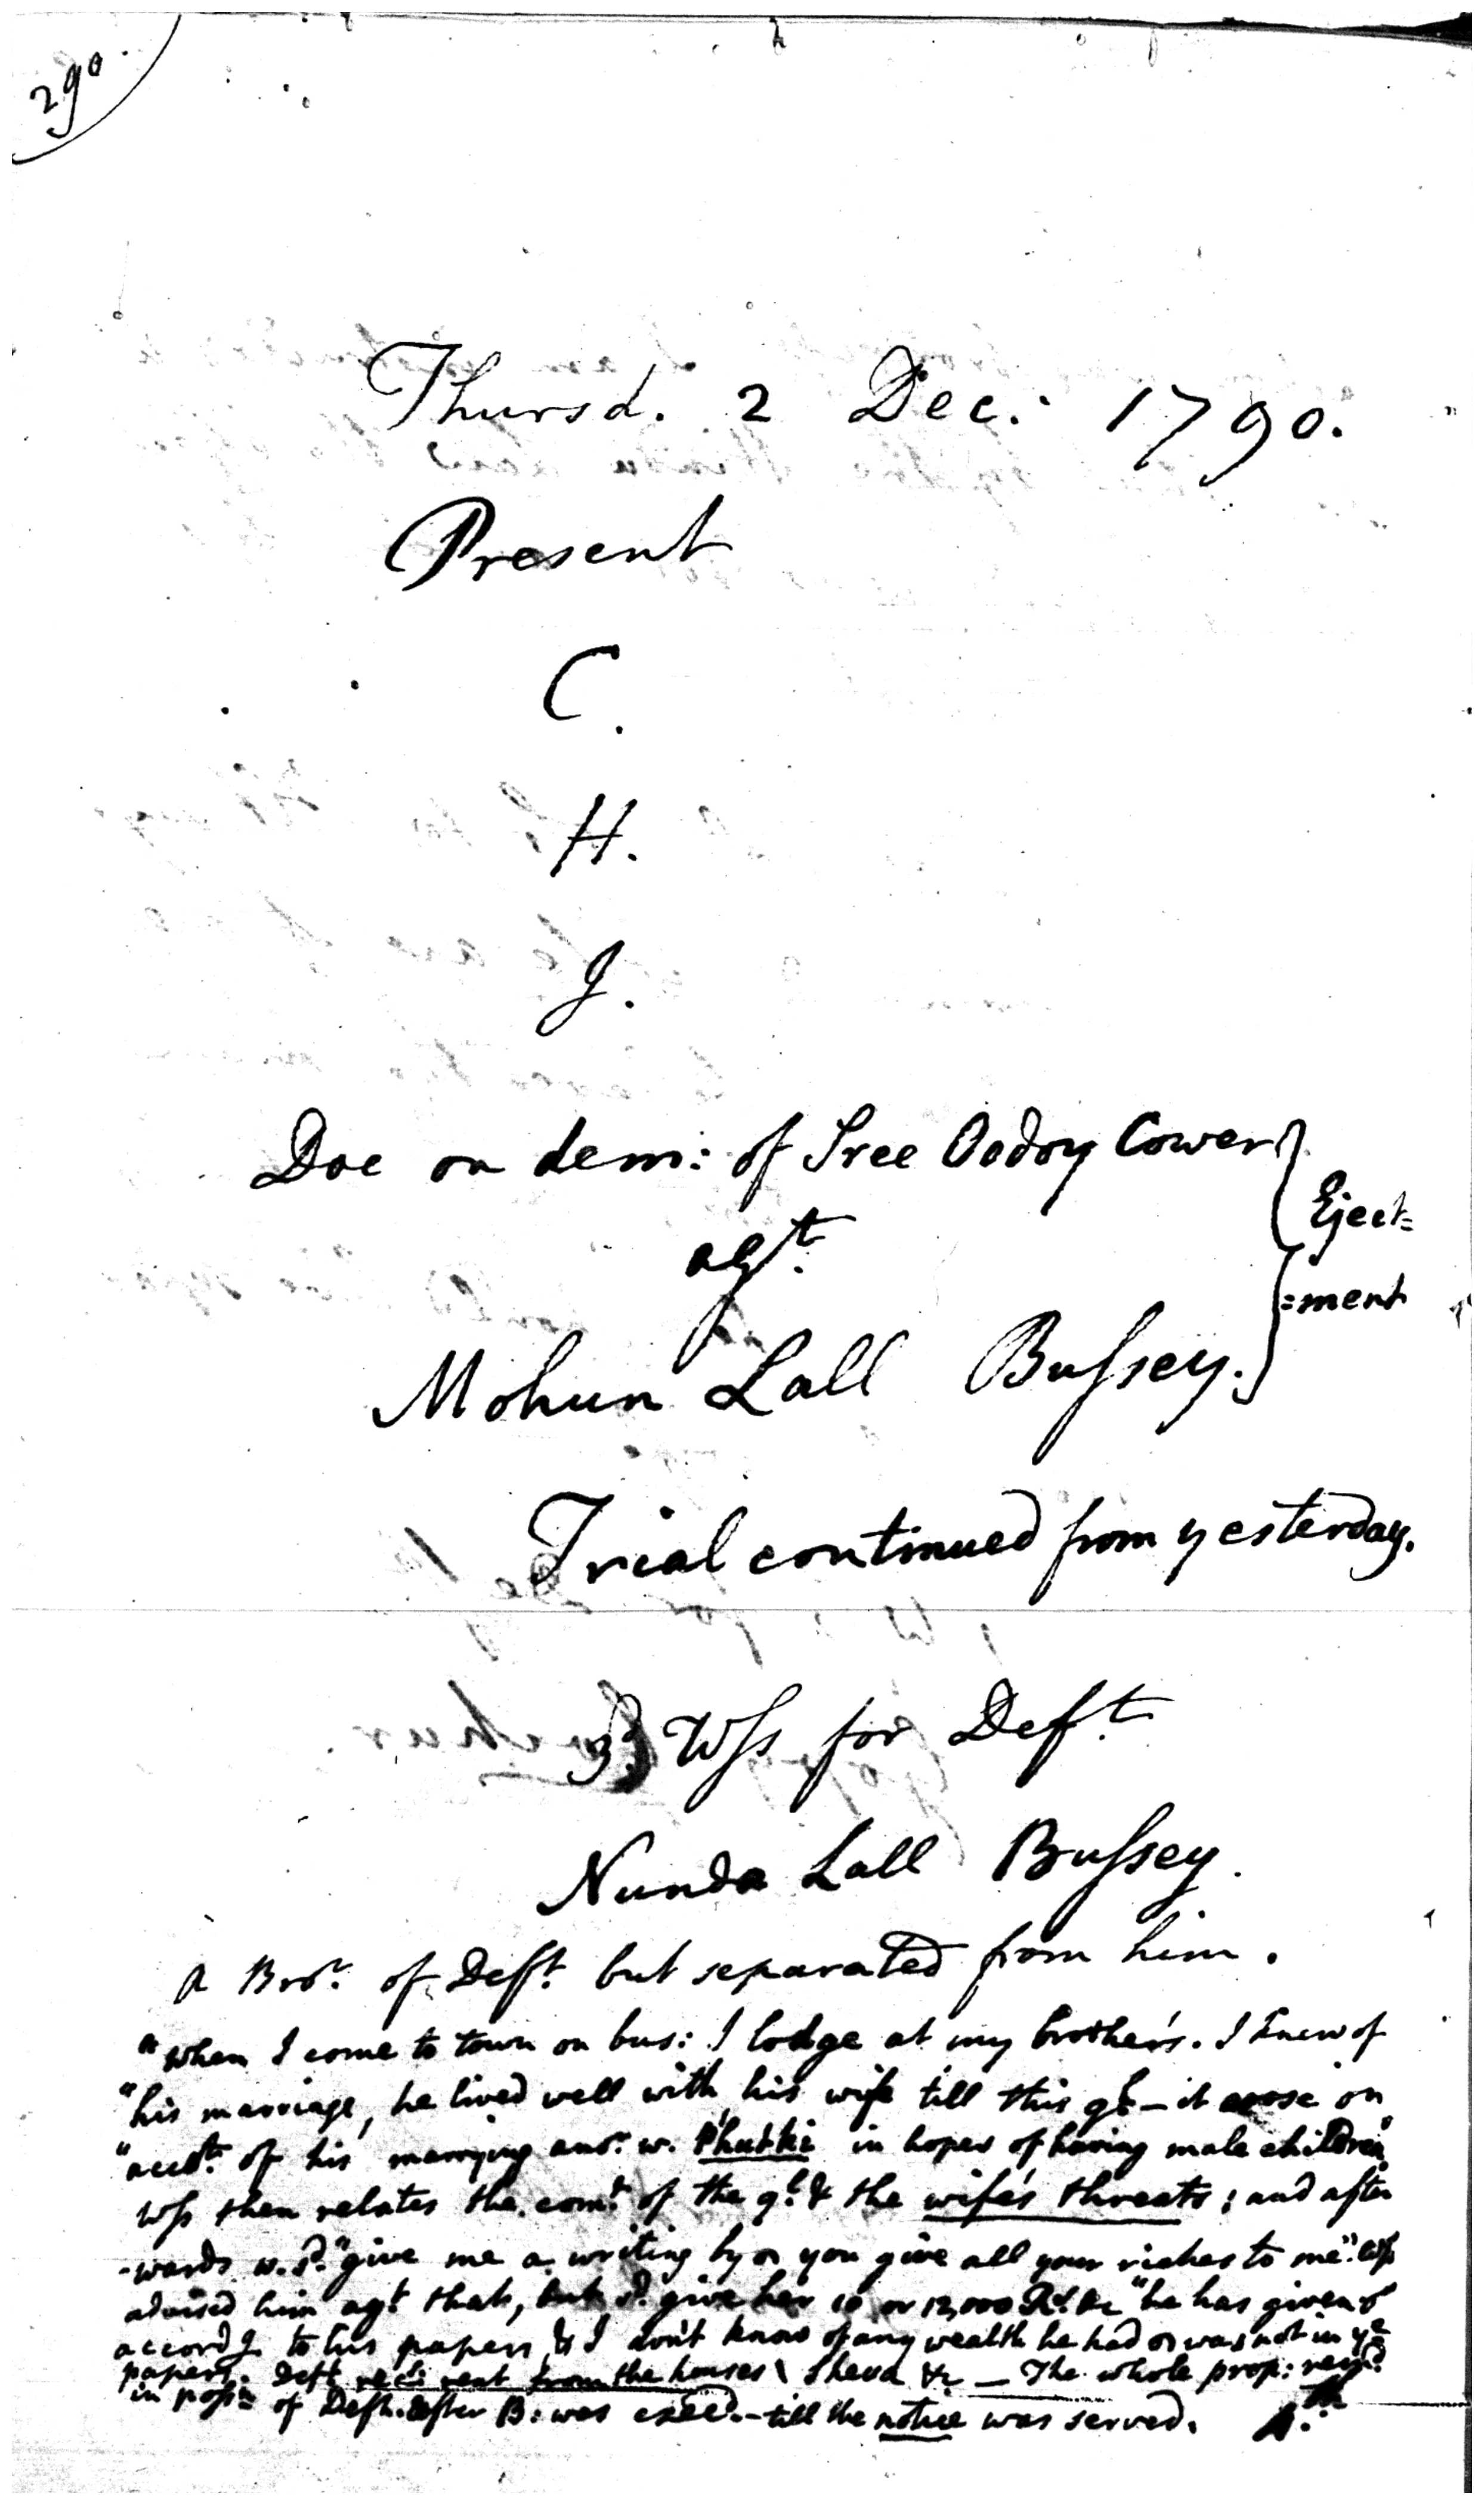 290.
Thursd. 2 Dec: 1790.
Present
C.
H.
J.
Doe on dem: of Sree Oodoy Cower
agt.
Eject=
=ment
Mohun Lall Bussey.
Trial continued from yesterday.
3d. Wss for Deft
Nunda Lall Bussey.
A Bror. of Deft. but separated from him.
"when I come to town on bus: I lodge at my brother's. I knew of
"his marriage, he lived well with his wife till this ql – it arose on
"acct. of his marrying anor. w. in hopes of having male children"
Wss then relates the comt. of the ql. & the wife's threats; and after
-wards w. sd. "give me a writing by wh you give all your riches to me".
advised him agt. that, but sd. give her 10 or 12,000 Rs. &c "he has given
accordg to his papers, & I don't know of any wealth he had wh was not in ye
papers. Deft recd. rent from the houses &c — The whole prop: remd.
in possn of Deft. after B: was exed. – till the notice was served.